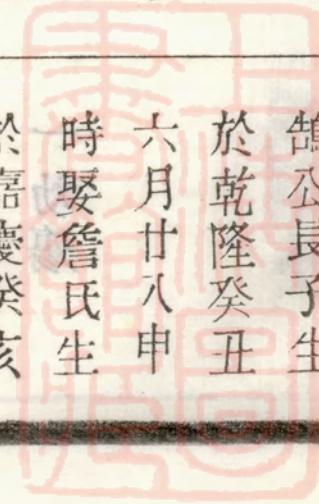 鵠公長子生
於乾隆癸丑
六月廿八申
時娶詹氏生
於嘉慶癸亥